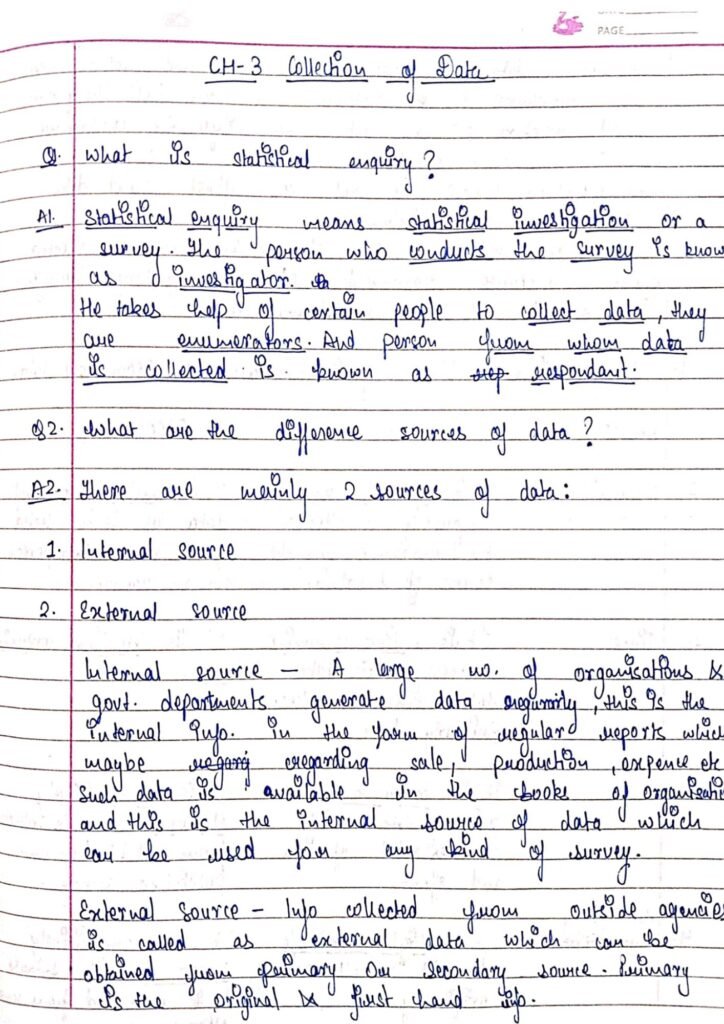 PAGE
CH-3 Collection of Data
Q. What is statistical enquiry?
A1. Statistical enquiry means statistical investigation or a
survey. The person who conducts the survey is know
as investigator.
He takes help of certain people to collect data, they
are enumerators. And person from whom data
is collected is known as rep respondant.
Q2. What are the difference sources of data?
A2. There are mainly 2 sources of data:
1. Internal source
2. External source
Internal source - A large no. of organisations &
govt. departments generate data regularly, this is the
internal info. in the form of regular reports which
maybe regarding sale, production, expence etc
Such data is available in the books of organisati
and this is the internal source of data which
can be used for any kind of survey.
External source - Info collected from outside agencies
is called as external data which can be
obtained from primary or secondary source. Primary
is the original & first hand info.